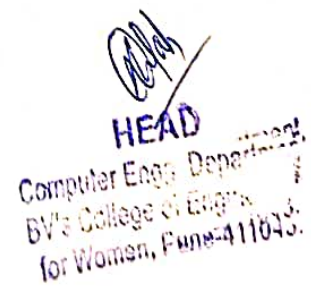 HEAD
Computer Engg. Department,
BV's College of Engg.
for Women, Pune-411043.